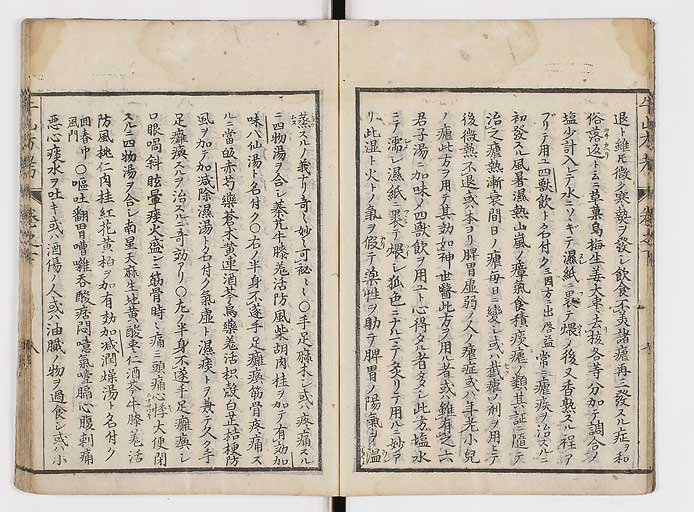 退ト雖𪜈微ク寒熱ヲ發シ飲食不美諸瘧再三發スル症ヲ和
俗落返トム云草菓烏梅生姜大棗去核各等分加テ調合ノ
塩少計入レテ水ニソギテ濕紙ニ裹テ煨ノ後又香熟スル程ア
ブリテ用ユ四獸飲ト名付ク三因方ニ出啓益常ニ瘧疾ヲ治スルニ
初發スル風暑濕熱山嵐ノ瘴氣食積痰瘧ノ類其証ニ隨テ
治之瘧熱漸衰間日ノ瘧毎日ニ變シ或ハ截瘧ノ剤ヲ用ヒテ
後微熱不退或ハ本ヨリ脾胃虚弱ノ人ノ瘧症或ハ年老小兒
ノ瘧此方ヲ用テ其効如神世醫此方ヲ用ル者或ハ雖有之六
君子湯ニ加味ノ四獸飲ヲ用ユト心得タル者多シ此方塩水
ニテ濡シ濕紙ニ裹テ煨シ狐色ニナルニテ炙リテ用ルニ妙ア
リ此湿ト火トノ氣ヲ假テ藥性ヲ助テ脾胃ノ陽氣ヲ温
蒸スルノ義ナリ奇〻妙〻可秘〻〻○手足麻木シ或ハ疼痛スル
ニ四物湯ヲ合シ秦艽牛膝羗活防風柴胡肉桂ヲ加テ有効加
味八仙湯ト名付ク○右ノ半身不遂手足癱瘓筋骨疼痛ス
ルニ當皈赤芍藥蒼朮黄連酒芩烏藥羗活枳殻白芷桔梗防
風ヲ加テ加減除濕湯ト名付ク氣虚ト濕痰トヲ兼テ人ノ手
足癱瘓スルヲ治スルニ奇効アリ○左ノ半身不遂手足癱瘓シ
口眼喎斜眩暈痰火盛ニ筋骨時〻痛ミ頭痛心悸大便閉
スルニ四物湯ヲ合シ南星天麻生地黄酸棗仁酒芩牛膝羗活
防風桃仁肉桂紅花黄柏ヲ加有効加減潤燥湯ト名付ク
回春中風門○嘔吐翻胃嘈雜呑酸痞悶噫氣噎膈心腹刺痛
惡心痰水ヲ吐キ或ハ酒傷ノ人或ハ油膩ノ物ヲ過食シ或ハ小